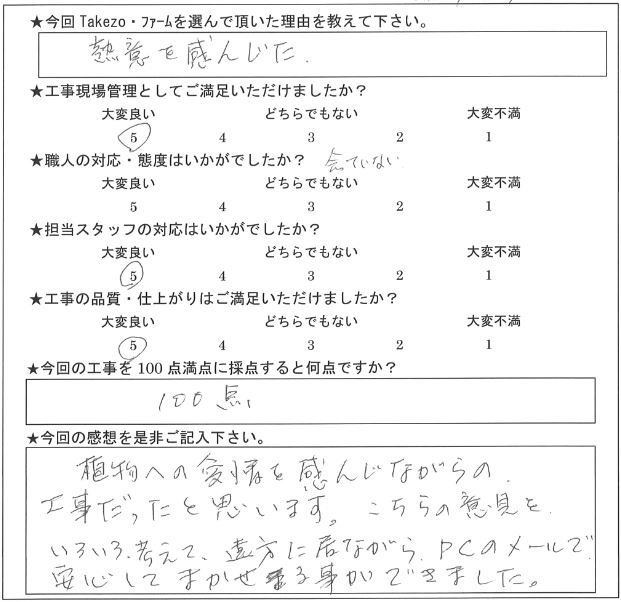 ★今回Takezo・ファームを選んで頂いた理由を教えて下さい。
熱意を感んじた.
★工事現場管理としてご満足いただけましたか？
大変良い どちらでもない 大変不満
5 4 3 2 1
★職人の対応・態度はいかがでしたか？ 会ていない
大変良い どちらでもない 大変不満
5 4 3 2 1
★担当スタッフの対応はいかがでしたか？
大変良い どちらでもない 大変不満
5 4 3 2 1
★工事の品質・仕上がりはご満足いただけましたか？
大変良い どちらでもない 大変不満
5 4 3 2 1
★今回の工事を100点満点に採点すると何点ですか？
100点
★今回の感想を是非ご記入下さい。
植物への愛情を感んじながらの
工事だったと思います。こちらの意見を
いろいろ考えて、遠方に居ながら、PCのメールで
安心してまかせる事ができました。